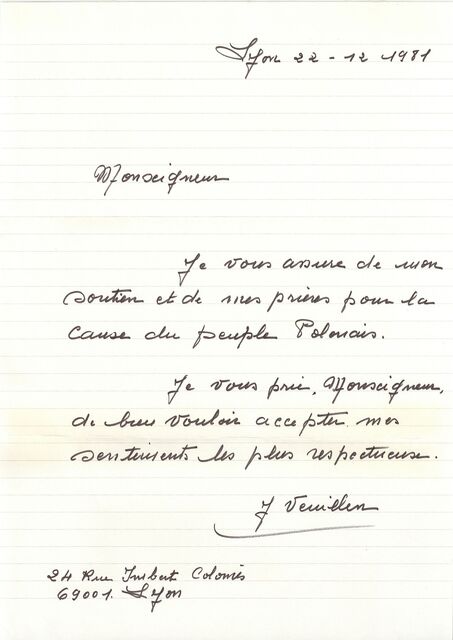 Lyon 22-12 1981
Monseigneur
Je vous assure de mon
soutien et de mes prières pour la
cause du peuple Polonais.
Je vous prie, Monseigneur,
de bien vouloir accepter mes
sentiments les plus respectueuse.
J Veuillen
24 Rue Imbert Colomès
69001. Lyon